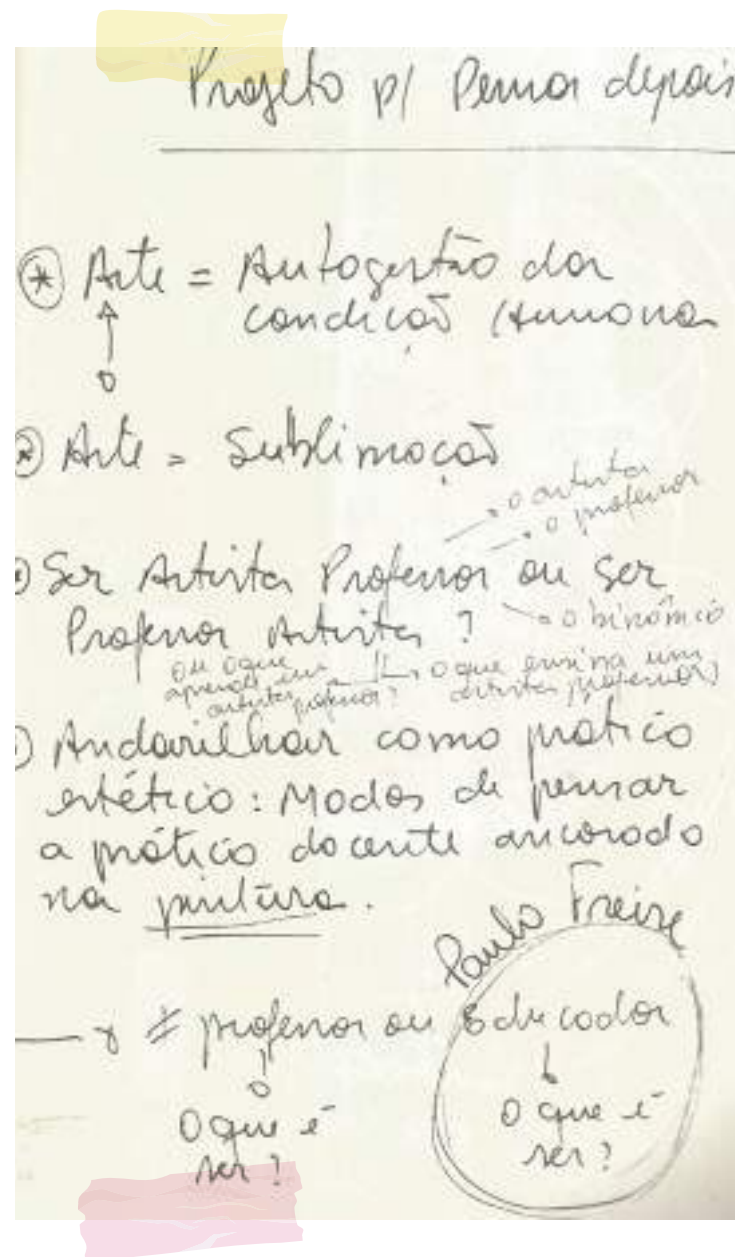 Projeto p/ Pensar depois
* Arte = Autogestão da
condição Humana
* Arte = Sublimação
• o artista
• o professor
* Ser Artista Professor ou ser
Professor Artista ?
• o binômio
ou o que
aprende um
artista professor?
o que ensina um
artista professor?
Andarilhar como prática
estética: Modos de pensar
a prática docente ancorado
na pintura.
Paulo Freire
≠ professor ou Educador
O que é
ser ?
O que é
ser ?